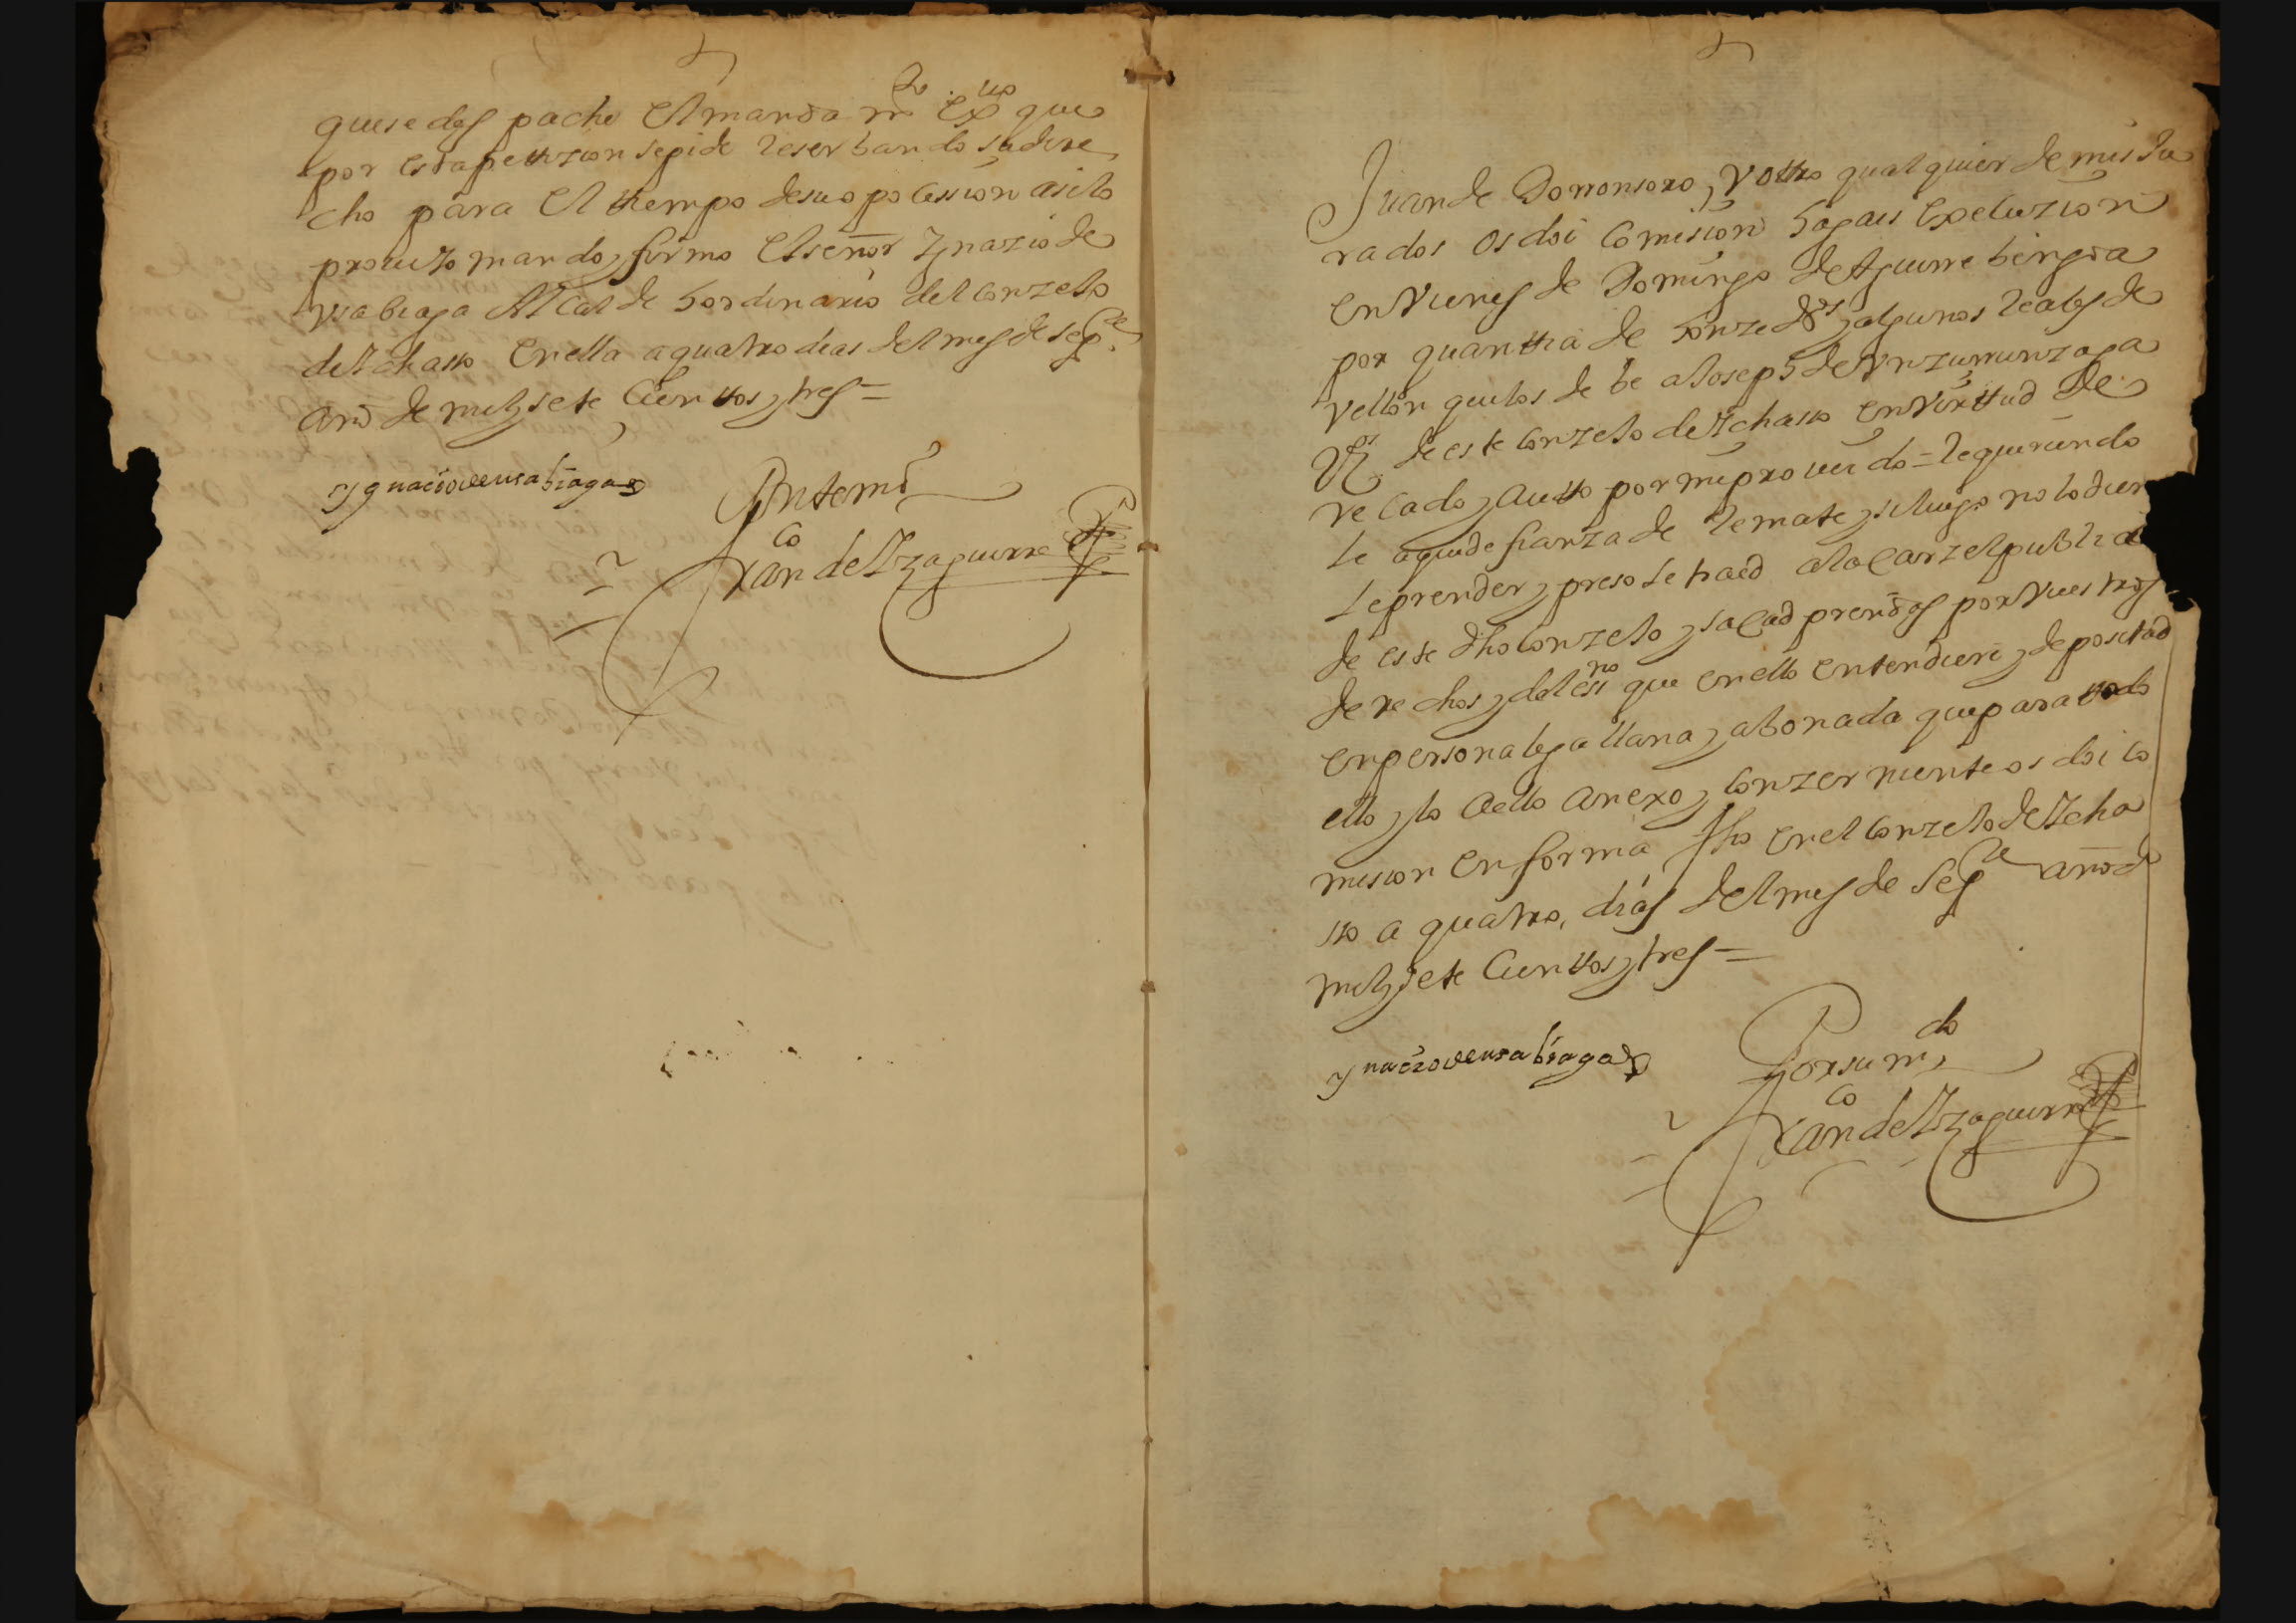 que se des pache el manda mto exuo que
por esta petizion se pide reserbando su dere
cho para el tiempo de su opocession asi lo
proueyo mando y firmo el señor Ygnazio de
vsabiaga Alcalde hordinario del conzejo
de Ychasso en ella a quatro dias del mes de sepre
año de mil y sete cientos y tres =
Ygnacio de usabiaga
Ante mi
franco de Yzaguirre
Juan de Dorronsoro, y otro qualquier de mis Ju
rados os doi comision hagais execuzion
en vienes de Domingo de Aguirre
por quantia de honze ds y algunos reales de
vellon que los debe a Joseph de Vnzurrunzaga
vo de este conzejo de Ychasso en virtud de
recado y autto por mi proueido = requiriendo
le a que de fianza de remate, y si luego no lo diere
le prender, y preso le traed a la carzel publica
de este dho conzejo y sacad prendas por vuestros
derechos y del essno que en ello entendiere y depositad
en persona lega llana y abonada que para todo
ello y lo a ello anexo y conzerniente os doi co
mision en forma fho en el conzejo de Ycha
sso a quatro, dias del mes de Sepre año de
mil y sete cientos y tres =
Ygnacio de usabiaga
Por su mdo
franco de Yzaguirre